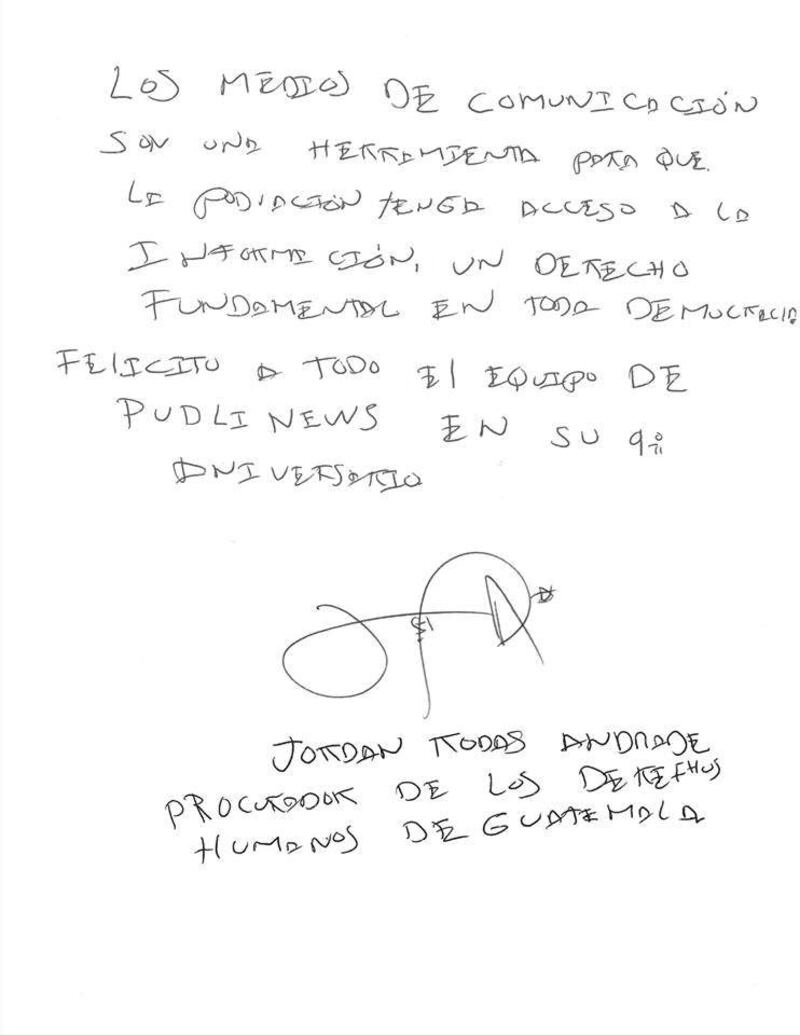 LOS MEDIOS DE COMUNICACIÓN
SON UNA HERRAMIENTA PARA QUE
LA POBLACIÓN TENGA ACCESO A LA
INFORMACIÓN, UN DERECHO
FUNDAMENTAL EN TODA DEMOCRACIA
FELICITO A TODO El EQUIPO DE
PUBLINEWS EN SU 9
ANIVERSARIO
JORDAN RODAS ANDRADE
PROCURADOR DE LOS DERECHOS
HUMANOS DE GUATEMALA